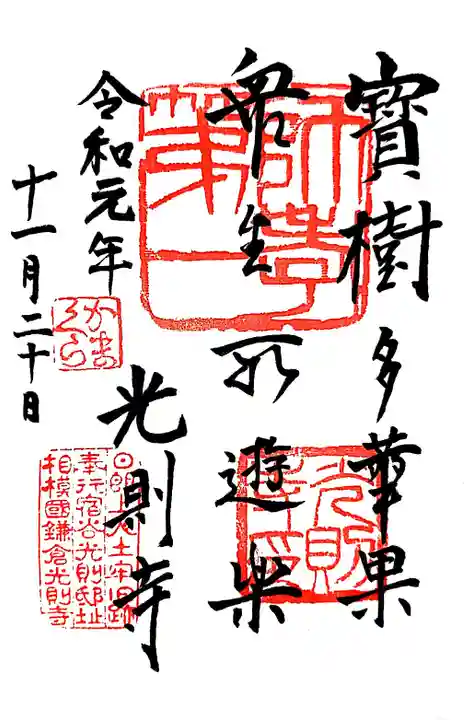 寳樹多華果
衆生所遊樂
令和元年
十一月二十日
光則寺
師孝第一
かまくら
光則寺印
日朗上人土牢旧跡
奉行宿谷光則邸址
相模國鎌倉光則寺